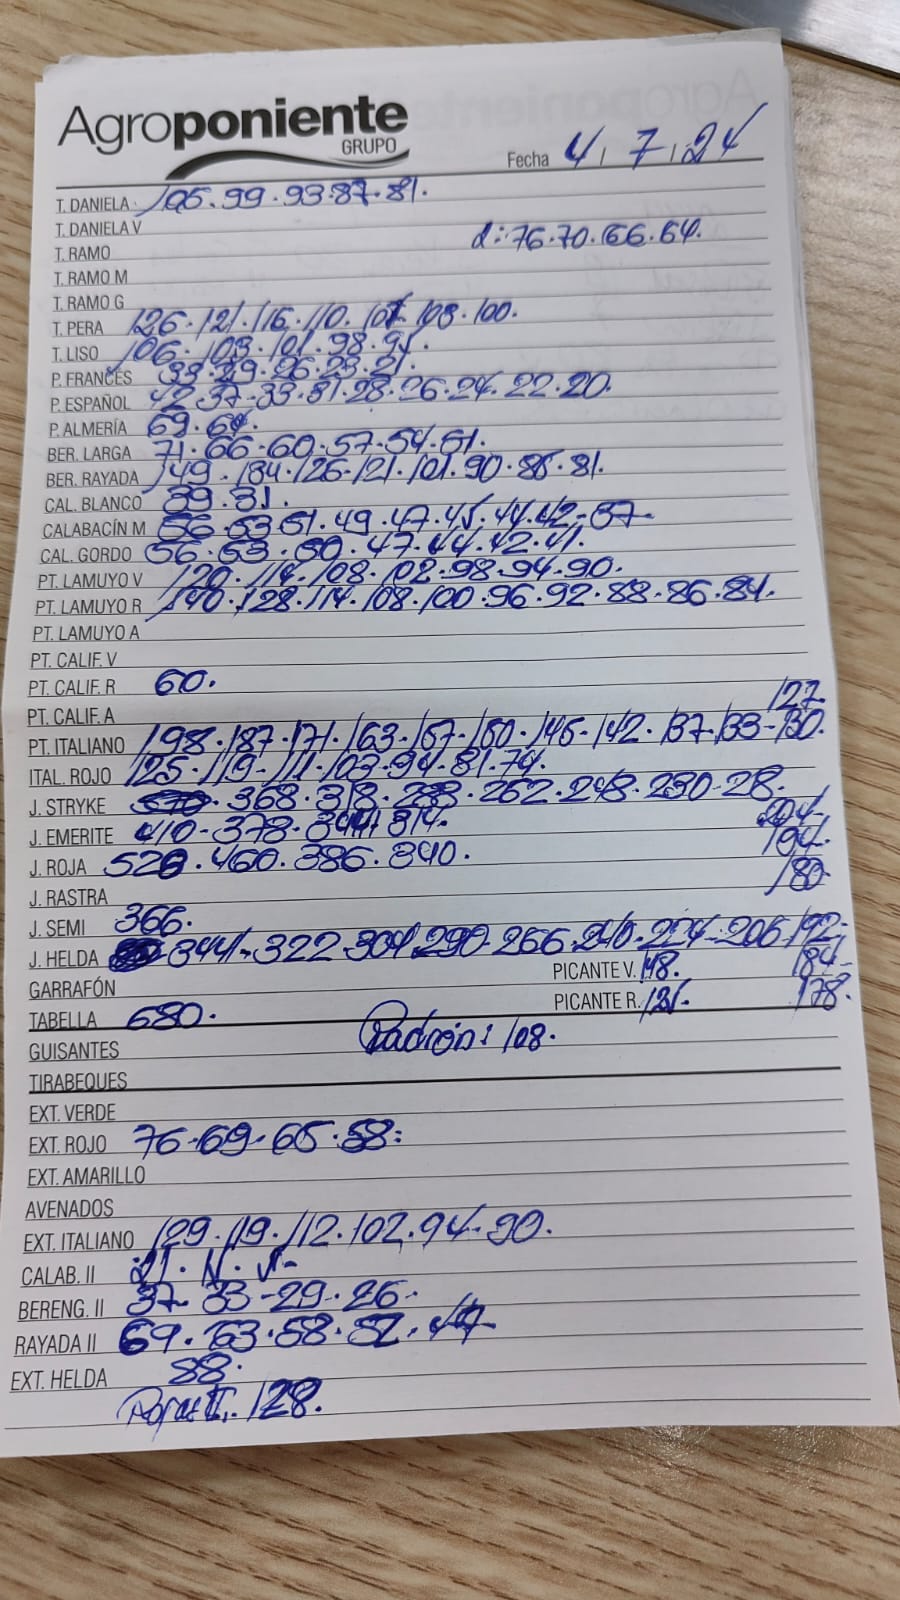 Agroponiente
GRUPO
Fecha 4, 7, 24
T. DANELA 105. 99. 93. 87. 81.
T. DANIELA V
T. RAMO 2: 76. 70. 66. 64.
T. RAMO M
T. RAMO G
T. PERA 126. 121. 116. 110. 107. 103. 100.
T. LISO 106. 103. 101. 98. 95.
P. FRANCÉS 33. 29. 26. 23. 21.
P. ESPAÑOL 42. 37. 33. 31. 28. 26. 24. 22. 20.
P. ALMERÍA 69. 64.
BER. LARGA 71. 66. 60. 57. 54. 51.
BER. RAYADA 149. 134. 126. 121. 101. 90. 85. 81.
CAL. BLANCO 39. 31.
CALABACÍN M 56. 53. 51. 49. 47. 45. 44. 42. 37.
CAL. GORDO 56. 53. 50. 47. 44. 42. 41.
PT. LAMUYO V 120. 114. 108. 102. 98. 94. 90.
PT. LAMUYO R 140. 128. 114. 108. 100. 96. 92. 88. 86. 84.
PT. LAMUYO A
PT. CALIF. V
PT. CALIF. R 60.
PT. CALIF. A 127.
PT. ITALIANO 198. 187. 171. 163. 157. 150. 145. 142. 137. 133. 130.
ITAL. ROJO 125. 119. 111. 103. 94. 81. 74.
J. STRYKE 368. 318. 288. 262. 248. 230. 28.
J. EMERITE 410. 378. 344. 314. 204.
J. ROJA 528. 460. 386. 340. 194.
J. RASTRA 180
J. SEMI 366.
J. HELDA 344. 322. 304. 290. 266. 240. 224. 206. 192.
GARRAFÓN PICANTE V. 148. 184.
TABELLA 680. PICANTE R. 121. 178.
GUISANTES Padrón: 108.
TIRABEQUES
EXT. VERDE
EXT. ROJO 76. 69. 65. 58.
EXT. AMARILLO
AVENADOS
EXT. ITALIANO 129. 119. 112. 102. 94. 90.
CALAB. II 21.
BERENG. II 37. 33. 29. 26.
RAYADA II 69. 63. 58. 52. 47
EXT. HELDA 88.
128.